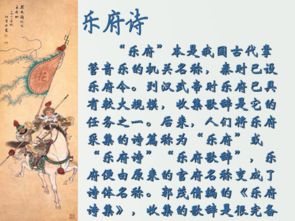 乐府诗
“乐府”本是我国古代掌
管音乐的机关名称，秦时已设
乐府令。到汉武帝时乐府已具
有较大规模，收集歌辞是它的
任务之一。后来，人们将乐府
采集的诗篇称为“乐府”或
“乐府诗”“乐府歌辞”，乐
府便由原来的官府名称变成了
诗体名称。郭茂倩编的《乐府
诗集》，收集的歌辞是很完备